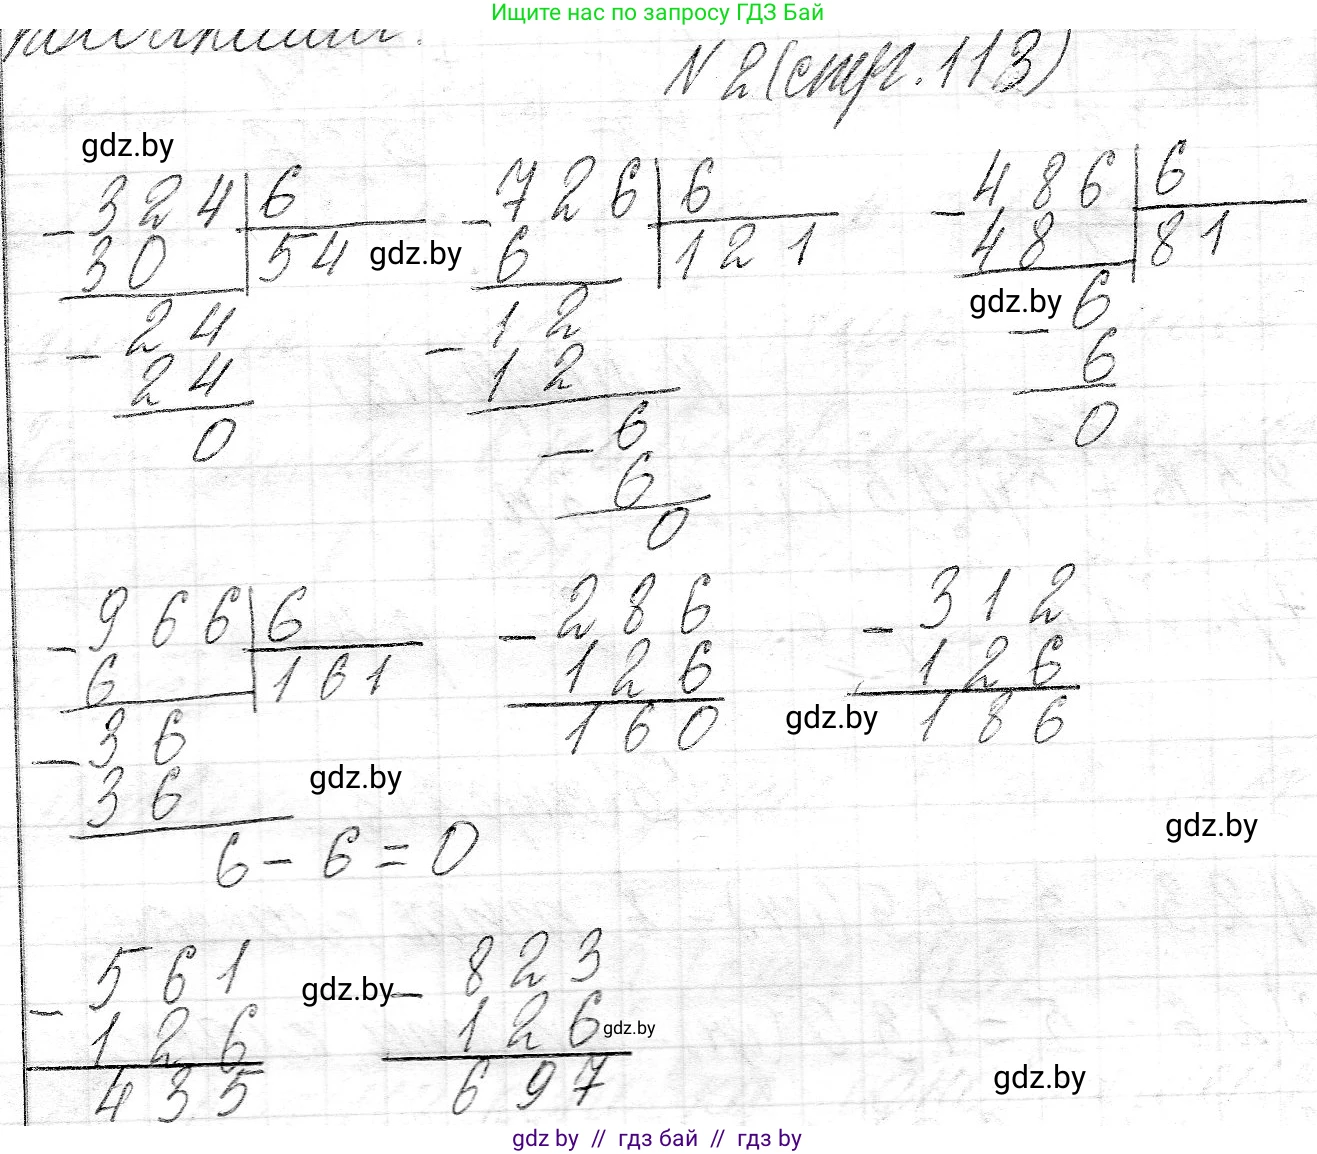 Ищите нас по запросу ГДЗ Бай
N 2 (стр. 113)
gdz.by
- 324 | 6
30 | 54
- 24
24
0
gdz.by
- 726 | 6
6 | 121
- 12
12
- 6
6
0
- 486 | 6
48 | 81
gdz.by
- 6
6
0
- 966 | 6
6 | 161
- 36
36
6 - 6 = 0
gdz.by
- 286
126
160
- 312
126
186
gdz.by
gdz.by
- 561
126
435
gdz.by
- 823
126
697
gdz.by
gdz.by
gdz by // гдз бай // гдз by